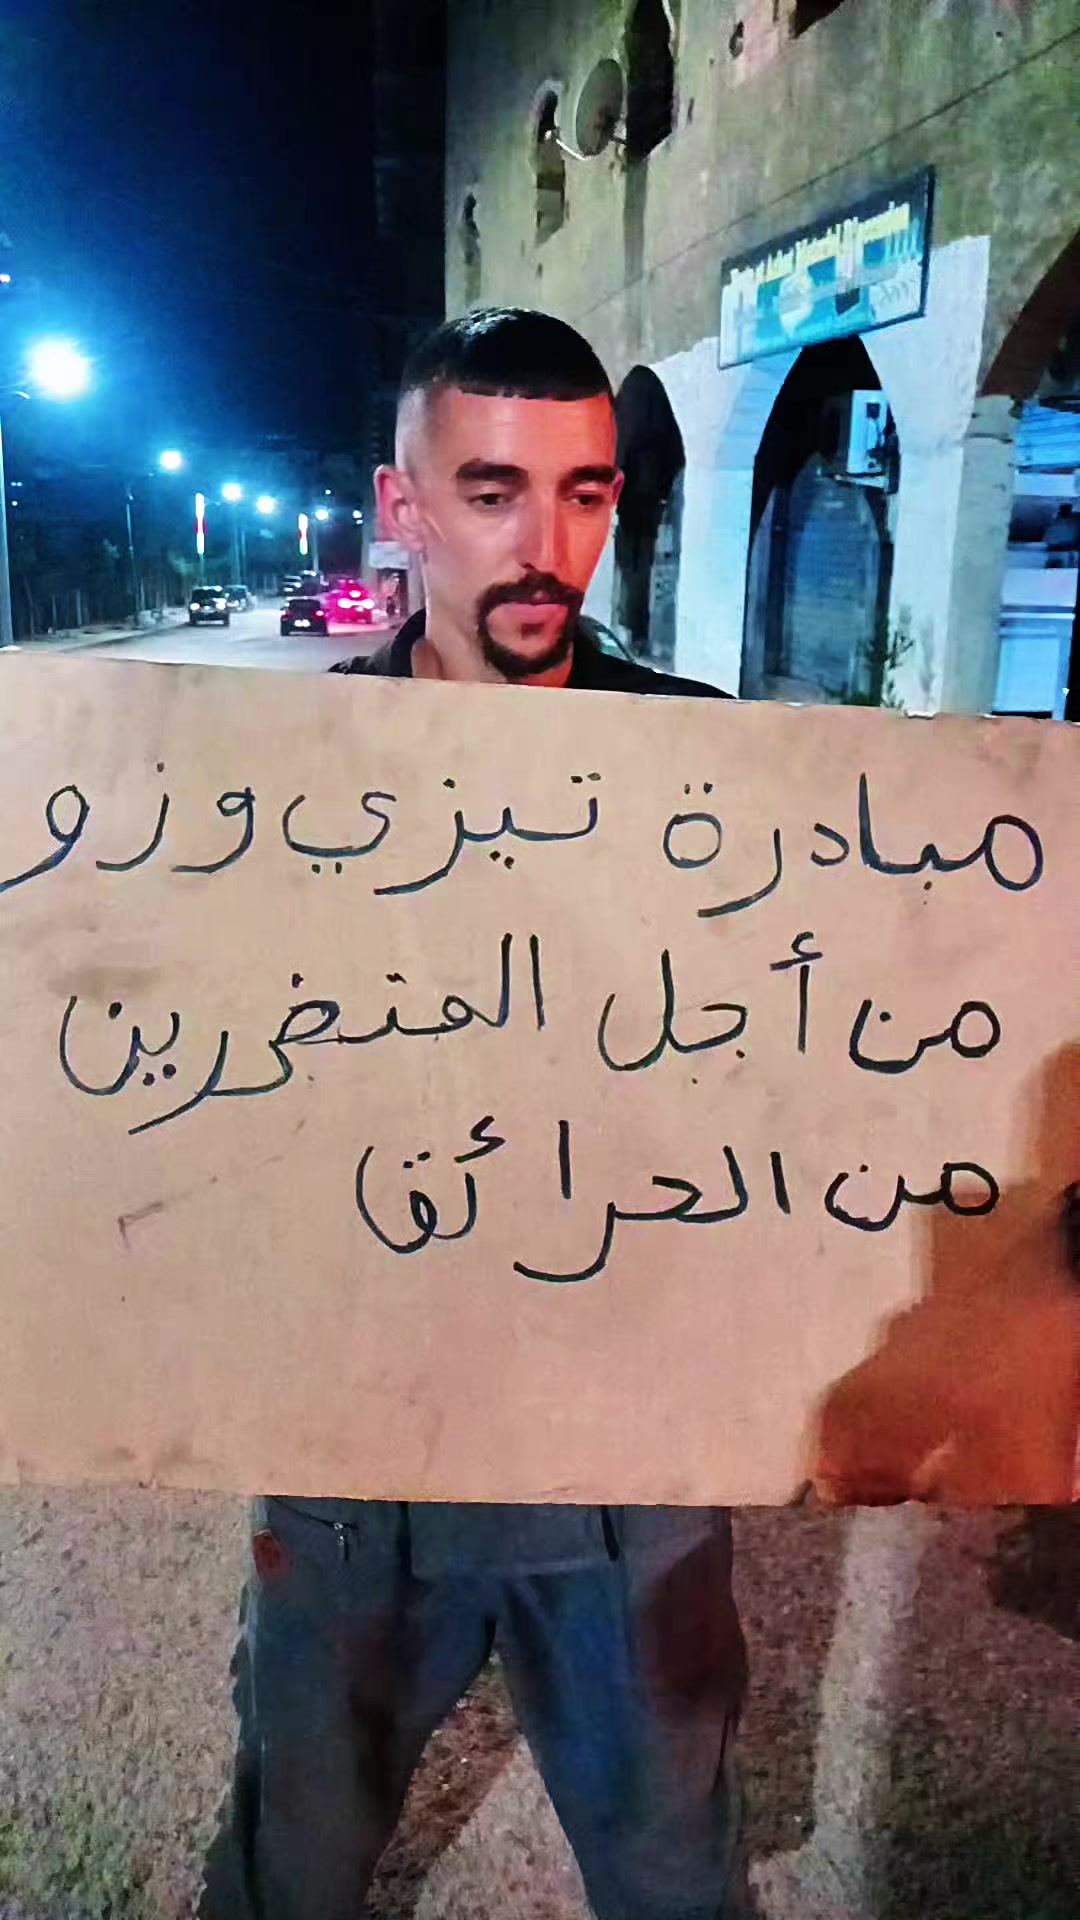 مبادرة تيزي وزو
من أجل المتضررين
من الحرائق